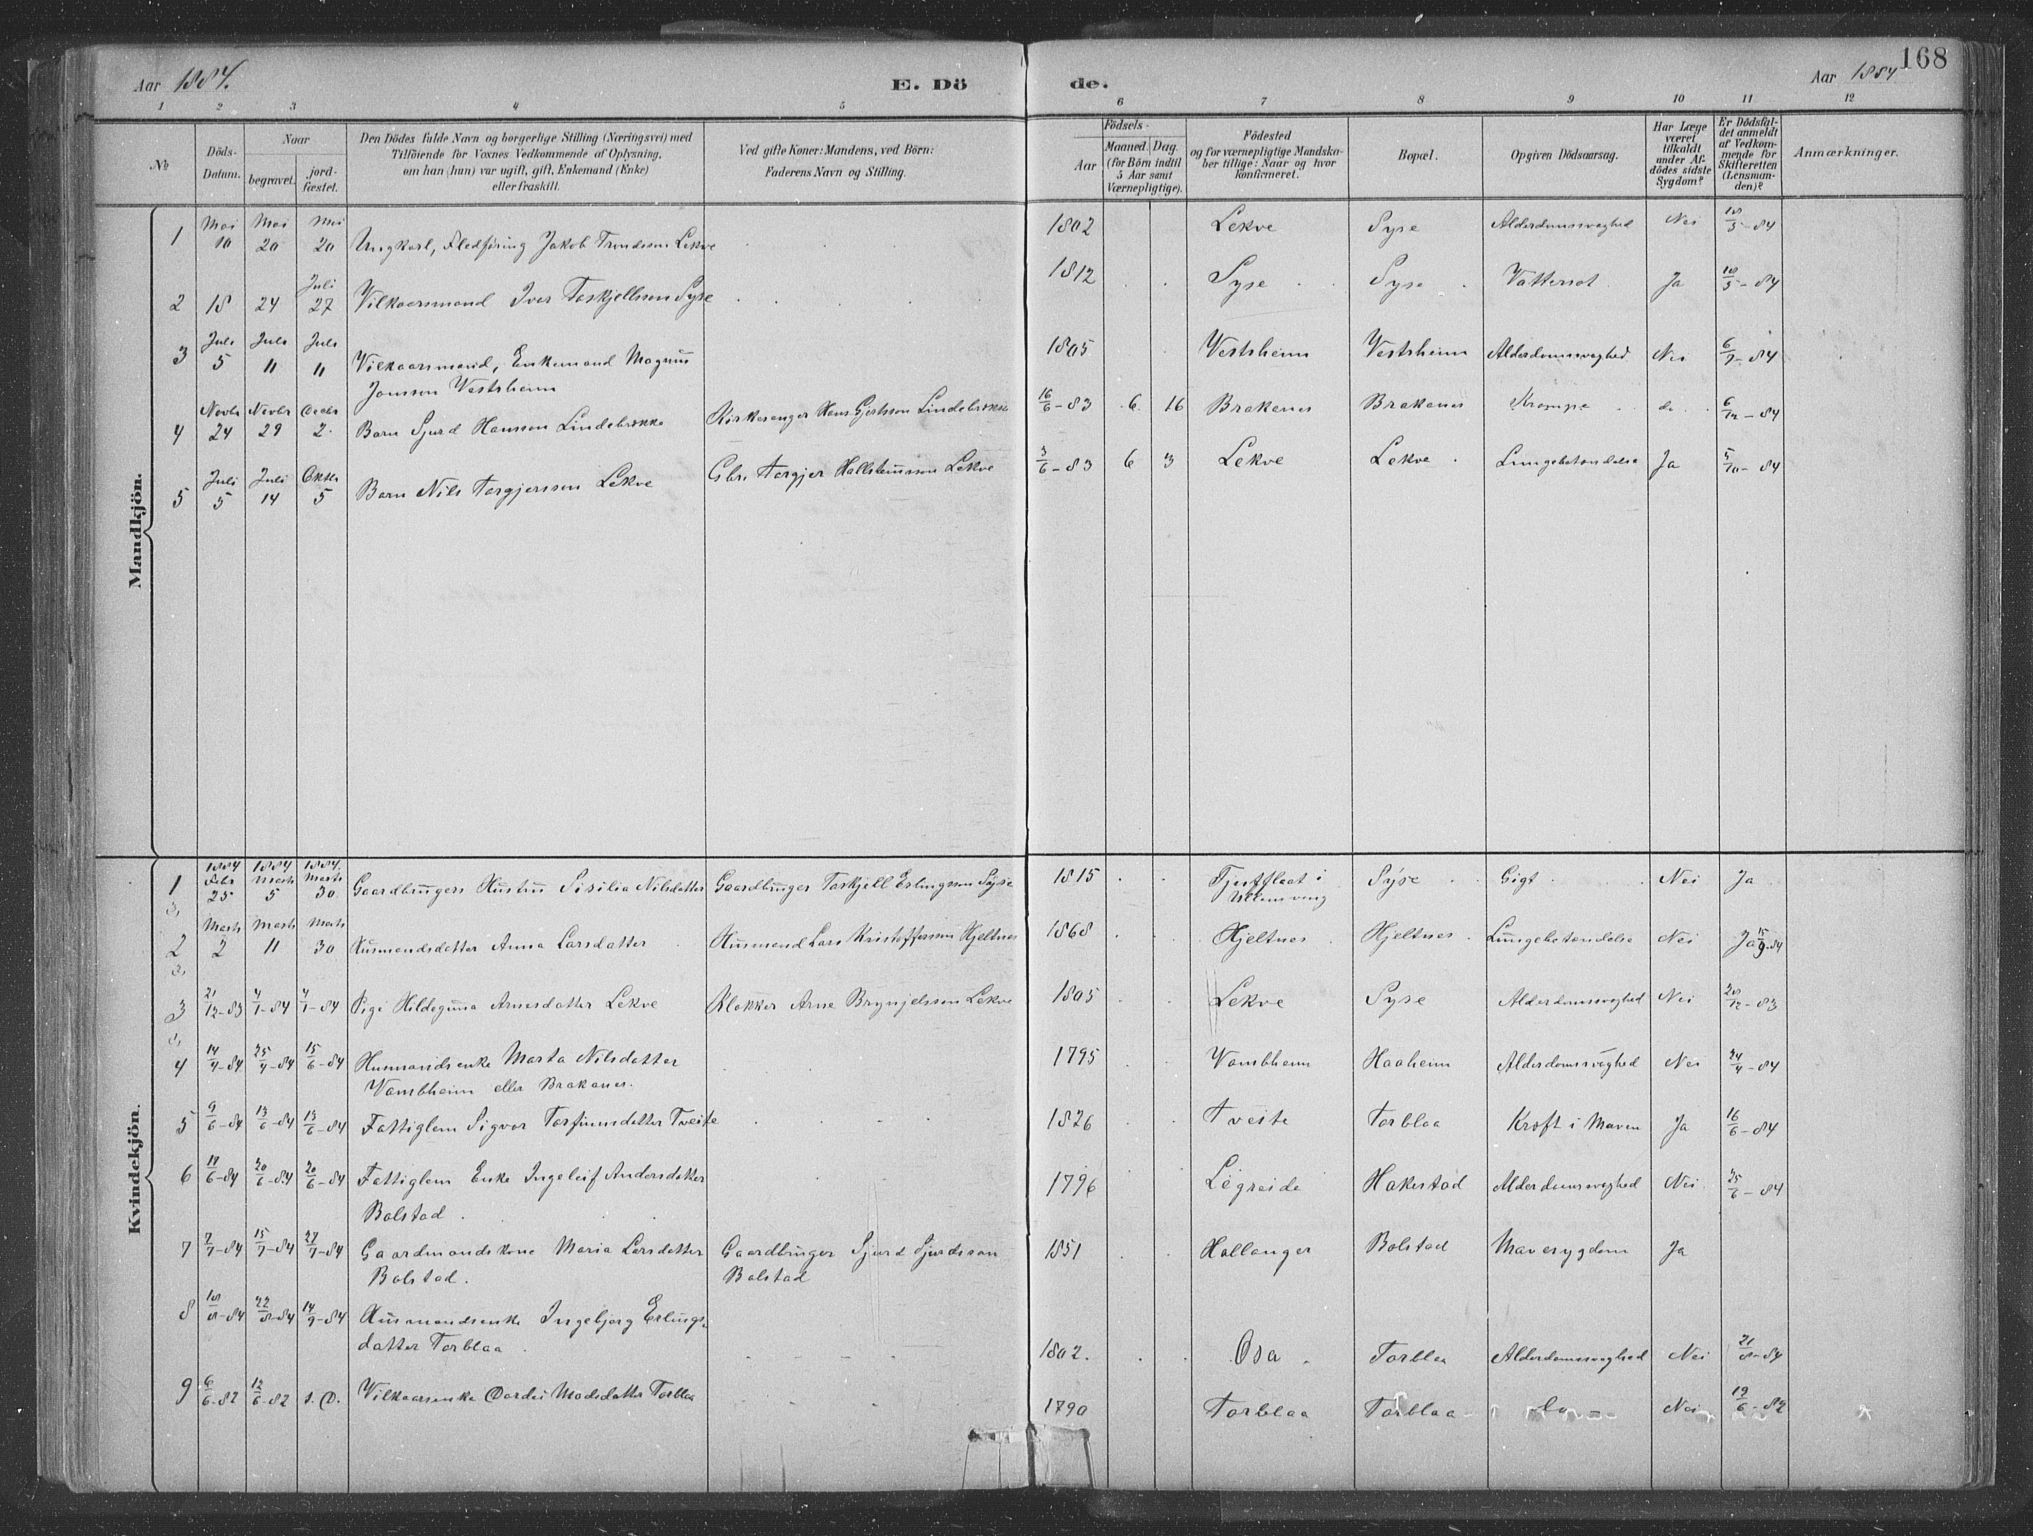 168
Aar 1884. E. Dö de. Aar 1884
1 2 3 4 5 6 7 8 9 10 11 12
№
Döds-Datum.
Naar
begravet.
jord-fæstet.
Den Dödes fulde Navn og borgerlige Stilling (Næringsvei) med
Tilföiende for Voxnes Vedkommende af Oplysning,
om han (hun) var ugift, gift, Enkemand (Enke)
eller fraskilt.
Ved gifte Koner: Mandens, ved Börn:
Faderens Navn og Stilling.
Födsels-
Aar
Maaned. Dag.
(for Börn indtil
5 Aar samt
Værnepligtige).
Födested
og for værnepligtige Mandska-
ber tillige: Naar og hvor
konfirmeret.
Bopæl.
Opgiven Dödsaarsag.
Har Læge
været
tilkaldt
under Af-
dödes sidste
Sygdom?
Er Dödsfal-
det anmeldt
af Vedkom-
mende for
Skifteretten
(Lensman-
den)?
Anmærkninger.
Mandkjön.
1 Mai 10 Mai 20 Mai 20 Ungkarl, Fledføring Jakob Trondssen Lekve 1802 Lekve Syse Alderdomssvaghed Nei 18/5-84
2 18 24 Juli 27 Vilkaarsmand Iver Torkjellssen Syse 1812 Syse Syse Vattersot Ja 18/5-84
3 Juli 5 Juli 11 Juli 11 Vilkaarsmand, Enkemand Magnus
Jonsson Vestrheim 1805 Vestrheim Vestrheim Alderdomssvaghed Nei 6/7-84
4 Novbr 24 Novbr 29 Decbr 2. Barn Sjurd Hansson Lindebrekke Kirkesanger Hans Gjertsson Lindebrekke 16/6-83 6. 16 Brakanes Brakanes Krampe do 6/12-84
5 Juli 5 Juli 14 Oktbr 5 Barn Nils Torgjerssen Lekve Gbr. Torgjer Hallsteinssen Lekve 3/6-83 6 3 Lekve Lekve Lungebetændelse Ja 5/10-84
Kvindekjön.
1 1884 Febr 25 1884 Marts 5 1884. Marts 30 Gaardbrugers Hustru Sisilia Nilsdatter Gaardbruger Torkjell Erlingssen Syse 1815 Tjoflaat i
Ullensvang Syse Gigt Nei Ja
2 Marts 2 Marts 11 Marts 30 Husmandsdatter Anna Larsdatter Husmand Lars Kristoffersson Hjeltnes 1868 Hjeltnes Hjeltnes Lungebetændelse Nei Ja 15/9-84
3 21/12-83 4/1-84 4/1-84 Pige Hildeguna Arnesdatter Lekve Klokker Arne Brynjelssen Lekve 1805 Lekve Syse Alderdomssvaghed Nei 28/12-83
4 14/4-84 25/4-84 15/6-84 Husmandsenke Marta Nilsdatter
Vambheim eller Brakanes. 1795 Vambheim Haaheim Alderdomssvaghed Nei 24/4-84
5 9/6-84 13/6-84 13/6-84 Fattiglem Sigvor Torfinnsdatter Tveite 1826 Tveite Torblaa Kræft i Maven Ja 16/6-84
6 11/6-84 20/6-84 20/6-84 Fattiglem Enke Ingeleif Andersdatter
Bolstad 1796 Løgreide Hakestad Alderdomssvaghed Nei 25/6-84
7 7/7-84 15/7-84 27/7-84 Gaardmandskone Maria Larsdatter
Bolstad. Gaardbruger Sjurd Sjurdsson
Bolstad 1851 Hallanger Bolstad Mavesygdom Ja
8 18/8-84 22/8-84 14/9-84 Husmandsenke Ingebjørg Erlings-
datter Torblaa 1802. Osa Torblaa Alderdomssvaghed Nei 21/8-84
9 6/6-82 12/6-82 s. D. Vilkaarsenke Dordei Madsdatter Torblaa 1790 Torblaa Torblaa do Nei 19/6-82